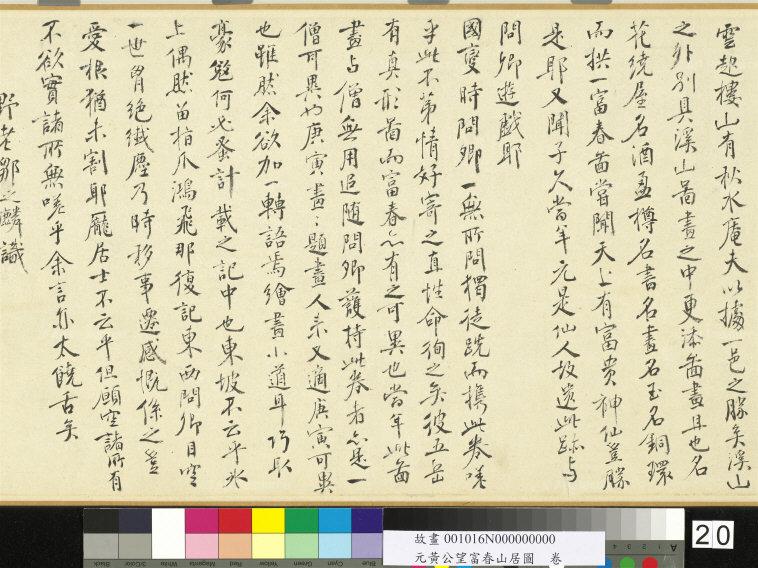 雲起樓山有秋水庵夫以據一邑之勝矣溪山
之外別具溪山圖畫之中更添圖畫且也名
花繞屋名酒盈樽名書名畫名玉名銅環
而拱一富春啚嘗聞天上有富貴神仙豈勝
是耶又聞子久當年元是仙人故遺此跡与
問卿遊戲耶
國變時問卿一無所問獨徒跣而攜此卷嗟
乎此不第情好寄之直性命徇之矣彼五岳
有真形啚而富春亦有之可異也當年此啚
畫与僧無用追隨問卿護持此卷者亦是一
僧可異也庚寅畫〻題畫人來又適庚寅可異
也雖然余欲加一轉語焉繪畫小道耳巧取
豪奪何必蚤計載之記中也東坡不云乎氷
上偶然留指爪鴻飛那復記東西問卿目空
一世胷絕纖塵乃時移事遷感慨係之豈
愛根猶未割耶龐居士不云乎但願空諸所有
不欲實諸所無嗟乎余言亦太饒舌矣
野老鄒之麟識
故畫 001016N000000000
元黃公望富春山居圖 卷
20
Black
3/Color
White
Magenta
Red
Yellow
Green
Cyan
Blue